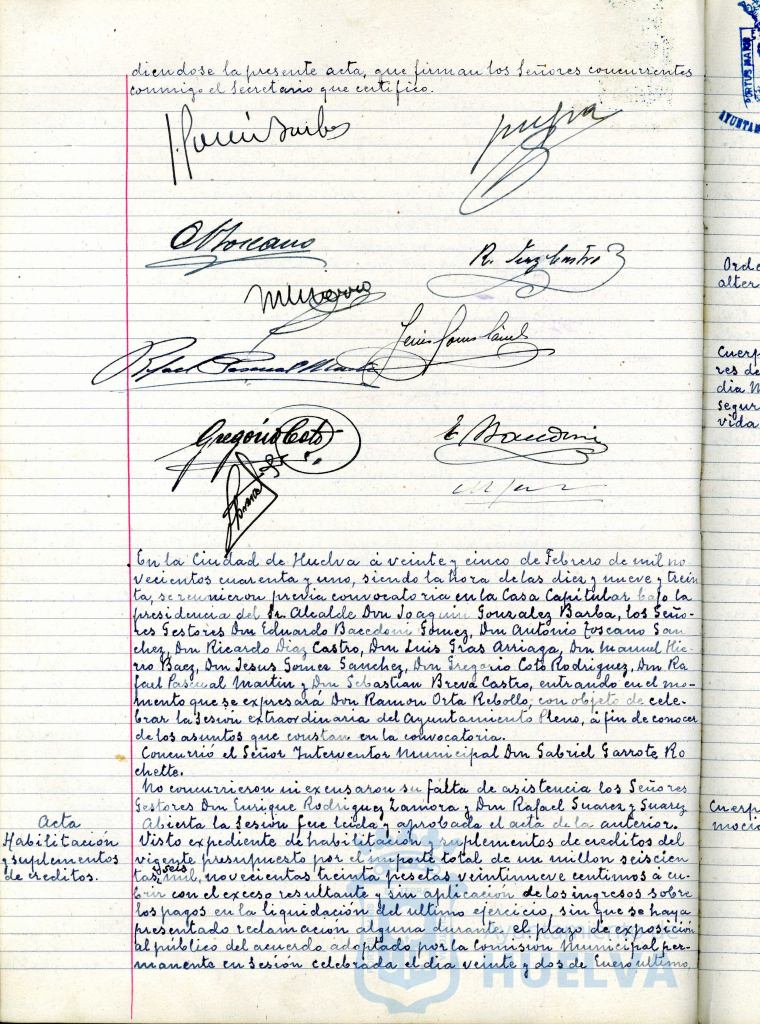 diendose la presente acta, que firman los Señores concurrentes
conmigo el Secretario que certifico.
R. Diaz Castro
Rafael Pascual Martin
Jesus Gomez Sanchez
Gregorio Coto
E. Bacedoni
En la Ciudad de Huelva á veinte y cinco de Febrero de mil no-
vecientos cuarenta y uno, siendo la hora de las diez y nueve y trein
ta, se reunieron previa convocatoria en la Casa Capitular bajo la
presidencia del Sr. Alcalde Don Joaquin Gonzalez Barba, los Seño-
res Gestores Don Eduardo Bacedoni Gómez, Don Antonio Toscano San
chez, Don Ricardo Diaz Castro, Don Luis Gras Arriaga, Don Manuel Hie-
rro Baez, Don Jesus Gomez Sanchez, Don Gregorio Coto Rodriguez, Don Ra
fael Pascual Martin y Don Sebastian Breva Castro, entrando en el mo-
mento que se expresará Don Ramon Orta Rebollo, con objeto de cele-
brar la Sesión extraordinaria del Ayuntamiento Pleno, á fin de conocer
de los asuntos que constan en la convocatoria.
Concurrió el Señor Interventor Municipal Don Gabriel Garrote Ro
chette.
No concurrieron ni excusaron su falta de asistencia los Señores
Gestores Don Enrique Rodriguez Zamora y Don Rafael Suarez y Suarez
Acta
Abierta la Sesión fue leida y aprobada el acta de la anterior.
Habilitación
y suplementos
de creditos.
Visto expediente de habilitación y suplementos de creditos del
vigente presupuesto por el importe total de un millon seiscien
tas seis mil, novecientos treinta pesetas veintinueve centimos á cu-
brir con el exceso resultante y sin aplicación de los ingresos sobre
los pagos en la liquidación del ultimo ejercicio, sin que se haya
presentado reclamación alguna durante el plazo de exposición
al publico del acuerdo adoptado por la Comision Municipal per-
manente en Sesión celebrada el dia veinte y dos de Enero ultimo,
HUELVA
PORTUS MARIS
AYUNTAM
Orde
alter
Cuerp
res de
dia M
segur
vida
Cuerp
moció